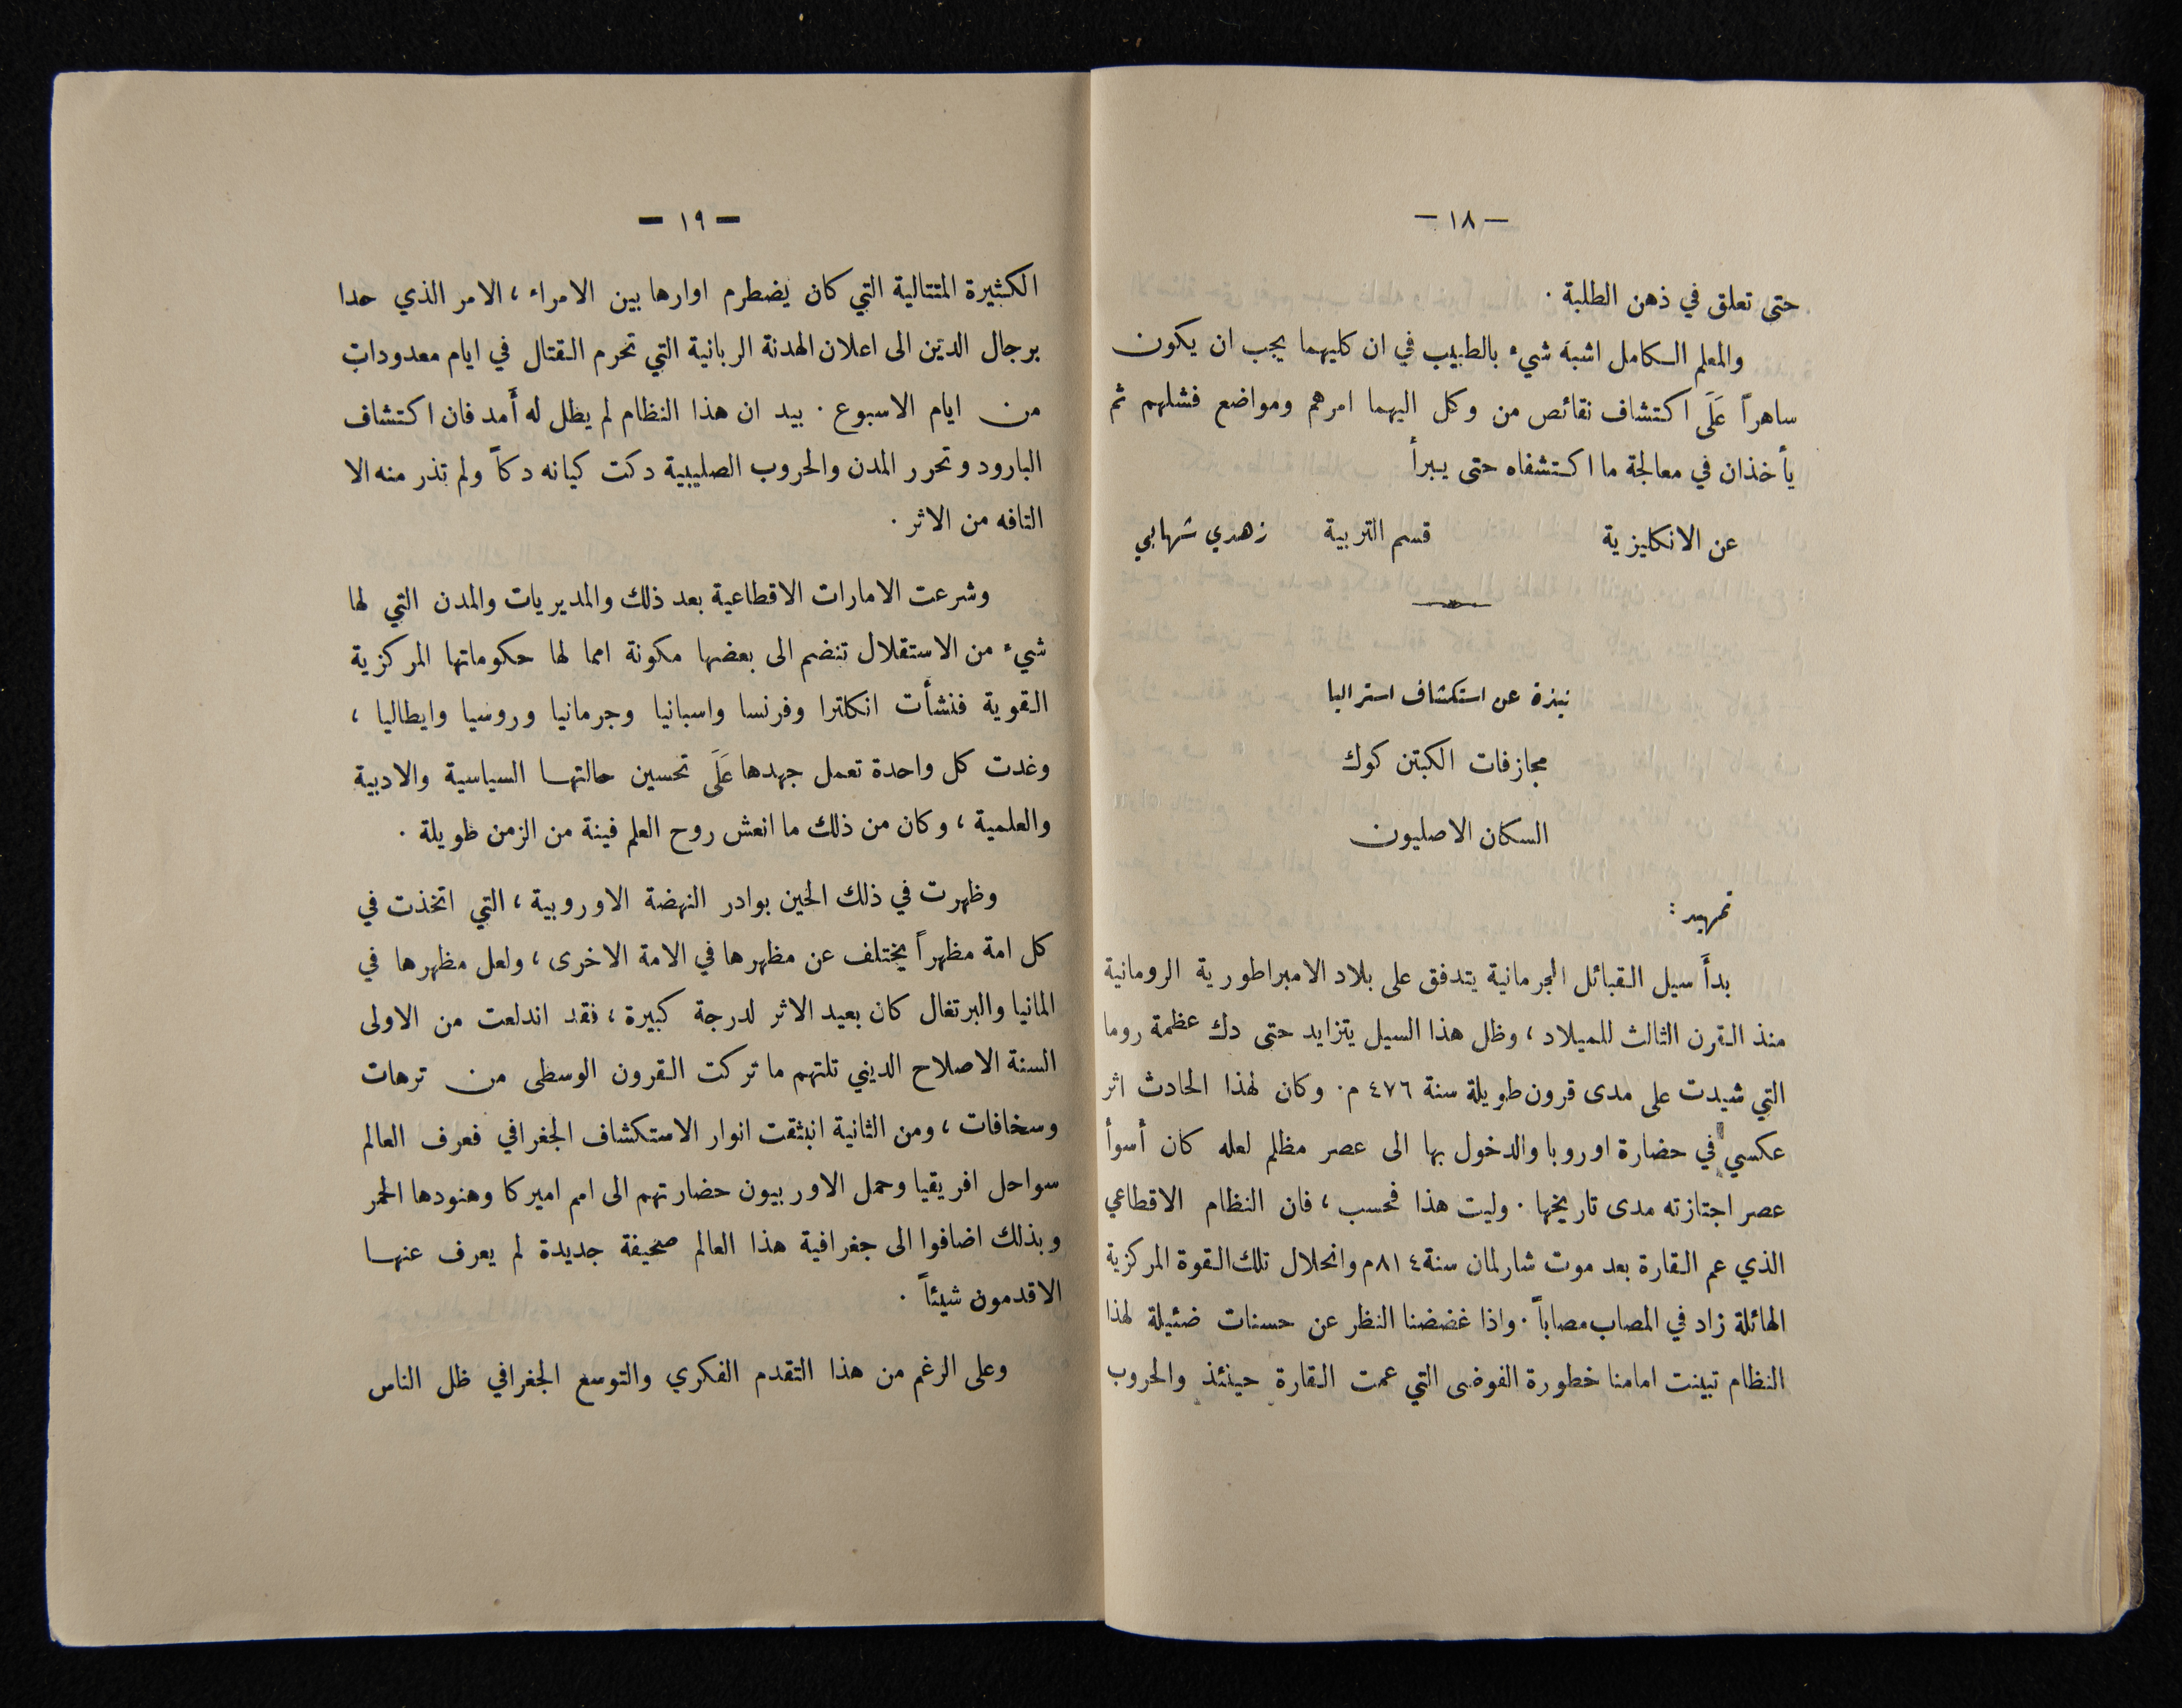 — ١٨ —
حتى تعلق في ذهن الطلبة .
والمعلم الكامل اشبه شيء بالطبيب في ان كليهما يجب ان يكون
ساهراً عَلَى اكتشاف نقائص من وكل اليهما امرهم ومواضع فشلهم ثم
يأخذان في معالجة ما اكتشفاه حتى يبرأ
عن الانكليزية قسم التربية زهدي شهابي
نبذة عن استكشاف استراليا
مجازفات الكبتن كوك
السكان الاصليون
تمهيد :
بدأَ سيل القبائل الجرمانية يتدفق على بلاد الامبراطورية الرومانية
منذ القرن الثالث للميلاد ، وظل هذا السيل يتزايد حتى دك عظمة روما
التي شيدت على مدى قرون طويلة سنة ٤٧٦ م . وكان لهذا الحادث اثر
عكسي في حضارة اوروبا والدخول بها الى عصر مظلم لعله كان أسوأ
عصر اجتازته مدى تاريخها . وليت هذا فحسب ، فان النظام الاقطاعي
الذي عم القارة بعد موت شارلمان سنة ٨١٤ م وانحلال تلك القوة المركزية
الهائلة زاد في المصاب مصاباً . واذا غضضنا النظر عن حسنات ضئيلة لهذا
النظام تبينت امامنا خطورة الفوضى التي عمت القارة حينئذ والحروب
— ١٩ —
الكثيرة المتتالية التي كان يضطرم اوارها بين الامراء ، الامر الذي حدا
برجال الدين الى اعلان الهدنة الربانية التي تحرم القتال في ايام معدودات
من ايام الاسبوع . بيد ان هذا النظام لم يطل له أَمد فان اكتشاف
البارود وتحرر المدن والحروب الصليبية دكت كيانه دكاً ولم تذر منه الا
التافه من الاثر .
وشرعت الامارات الاقطاعية بعد ذلك والمديريات والمدن التي لها
شيء من الاستقلال تنضم الى بعضها مكونة امما لها حكوماتها المركزية
القوية فنشأت انكلترا وفرنسا واسبانيا وجرمانيا وروسيا وايطاليا ،
وغدت كل واحدة تعمل جهدها عَلَى تحسين حالتها السياسية والادبية
والعلمية ، وكان من ذلك ما انعش روح العلم فينة من الزمن طويلة .
وظهرت في ذلك الحين بوادر النهضة الاوروبية ، التي اتخذت في
كل امة مظهراً يختلف عن مظهرها في الامة الاخرى ، ولعل مظهرها في
المانيا والبرتغال كان بعيد الاثر لدرجة كبيرة ، فقد اندلعت من الاولى
السنة الاصلاح الديني تلتهم ما تركت القرون الوسطى من ترهات
وسخافات ، ومن الثانية انبثقت انوار الاستكشاف الجغرافي فعرف العالم
سواحل افريقيا وحمل الاوربيون حضارتهم الى امم اميركا وهنودها الحمر
وبذلك اضافوا الى جغرافية هذا العالم صحيفة جديدة لم يعرف عنها
الاقدمون شيئاً .
وعلى الرغم من هذا التقدم الفكري والتوسع الجغرافي ظل الناس